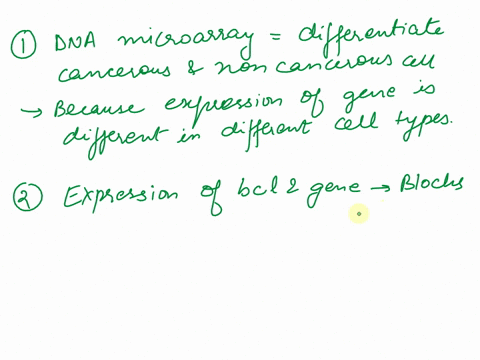 ① DNA microarray = differentiate
cancerous & non cancerous cell
→ Because expression of gene is
different in different cell types.
② Expression of bcl2 gene → Blocks